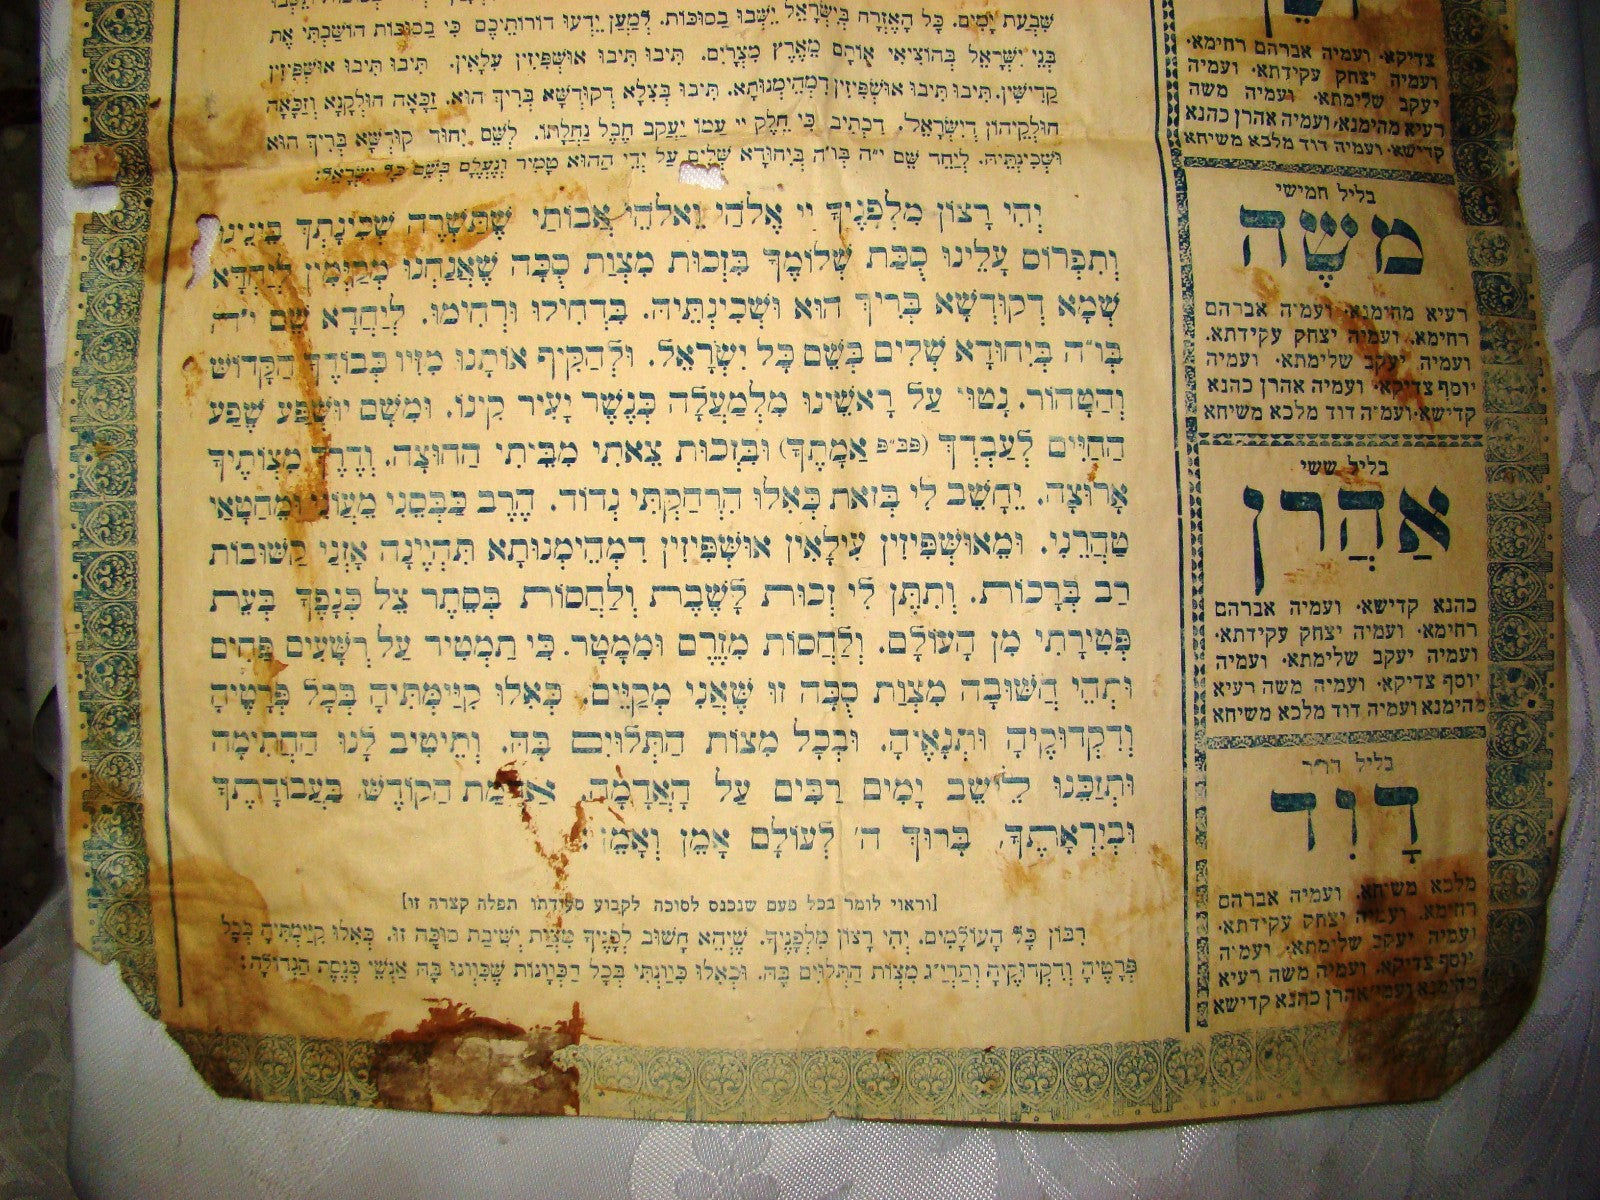 שִׁבְעַת יָמִים. כָּל הָאֶזְרָח בְּיִשְׂרָאֵל יֵשְׁבוּ בַסוּכּוֹת. לְמַעַן יֵדְעוּ דוֹרוֹתֵיכֶם כִּי בַסוּכּוֹת הוֹשַׁבְתִּי אֶת
בְּנֵי יִשְׂרָאֵל בְּהוֹצִיאִי אוֹתָם מֵאֶרֶץ מִצְרָיִם. תִּיבוּ תִּיבוּ אוּשְׁפִּיזִין עִלָּאִין. תִּיבוּ תִּיבוּ אוּשְׁפִּיזִין
קַדִּישִׁין. תִּיבוּ תִּיבוּ אוּשְׁפִּיזִין דִמְהֵימְנוּתָא. תִּיבוּ בְּצִלָּא דְקוּדְשָׁא בְּרִיךְ הוּא. זַכָּאָה חוּלָקָנָא וְזַכָּאָה
חוּלָקֵיהוֹן דְיִשְׂרָאֵל. דִכְתִיב כִּי חֵלֶק יי עַמּוֹ יַעֲקֹב חֶבֶל נַחֲלָתוֹ. לְשֵׁם יִחוּד קוּדְשָׁא בְּרִיךְ הוּא
וּשְׁכִינְתֵּיהּ. לְיַחֵד שֵׁם י״ה בְּו״ה בְּיִחוּדָא שְׁלִים עַל יְדֵי הַהוּא טָמִיר וְנֶעְלָם בְּשֵׁם כָּל יִשְׂרָאֵל:
יְהִי רָצוֹן מִלְּפָנֶיךָ יְיָ אֱלֹהַי וֵאלֹהֵי אֲבוֹתַי שֶׁתַּשְׁרֶה שְׁכִינָתְךָ בֵּינֵינוּ
וְתִפְרוֹס עָלֵינוּ סֻכַּת שְׁלוֹמֶךָ בִּזְכוּת מִצְוַת סֻכָּה שֶׁאֲנַחְנוּ מְקַיְּמִין לְיַחֲדָא
שְׁמָא דְקוּדְשָׁא בְּרִיךְ הוּא וּשְׁכִינְתֵּיהּ. בִּדְחִילוּ וּרְחִימוּ. לְיַחֲדָא שֵׁם י״ה
בְּו״ה בְּיִחוּדָא שְׁלִים בְּשֵׁם כָּל יִשְׂרָאֵל. וּלְהַקִּיף אוֹתָנוּ מִזִּיו כְּבוֹדְךָ הַקָּדוֹשׁ
וְהַטָּהוֹר. נָטוּי עַל רָאשֵׁינוּ מִלְמַעְלָה כְּנֶשֶׁר יָעִיר קִינּוֹ. וּמִשָּׁם יוּשְׁפַּע שֶׁפַע
הַחַיִּים לְעַבְדְּךָ (פב״פ אֲמָתֶךָ) וּבִזְכוּת צֵאתִי מִבֵּיתִי הַחוּצָה. וְדֶרֶךְ מִצְוֹתֶיךָ
אָרוּצָה. יֵחָשֵׁב לִי בְּזֹאת כְּאִלּוּ הִרְחַקְתִּי נְדוֹד. הֶרֶב כַּבְּסֵנִי מֵעֲוֹנִי וּמֵחַטָּאתִי
טַהֲרֵנִי. וּמֵאוּשְׁפִּיזִין עִילָאִין אוּשְׁפִּיזִין דִמְהֵימְנוּתָא תִּהְיֶינָה אָזְנֶי קַשּׁוּבוֹת
רַב בְּרָכוֹת. וְתִתֶּן לִי זְכוּת לָשֶׁבֶת וְלַחֲסוֹת בְּסֵתֶר צֵל כְּנָפֶךָ בְּעֵת
פְּטִירָתִי מִן הָעוֹלָם. וְלַחֲסוֹת מִזֶּרֶם וּמִמָּטָר. כִּי תַמְטִיר עַל רְשָׁעִים פַּחִים
וּתְהֵי חֲשׁוּבָה מִצְוַת סֻכָּה זוּ שֶׁאֲנִי מְקַיֵּים. כְּאִלּוּ קִיַּימְתִּיהָ בְּכָל פְּרָטֶיהָ
וְדִקְדּוּקֶיהָ וּתְנָאֶיהָ. וּבְכָל מִצְוֹת הַתְּלוּיִם בָּהּ. וְתֵיטִיב לָנוּ הַחֲתִימָה
וּתְזַכֵּנוּ לֵישֵׁב יָמִים רַבִּים עַל הָאֲדָמָה. אַדְמַת הַקּוֹדֶשׁ. בַּעֲבוֹדָתֶךָ
וּבְיִרְאָתֶךָ. בָּרוּךְ ה׳ לְעוֹלָם אָמֵן וְאָמֵן:
[וראוי לומר בכל פעם שנכנס לסוכה לקבוע סעודתו תפלה קצרה זו]
רִבּוֹן כָּל הָעוֹלָמִים. יְהִי רָצוֹן מִלְּפָנֶיךָ. שֶׁיְּהֵא חָשׁוּב לְפָנֶיךָ מִצְוַת יְשִׁיבַת סוּכָּה זוּ. כְּאִלוּ קִיַּימְתִּיהָ בְּכָל
פְּרָטֶיהָ וְדִקְדּוּקֶיהָ וְתַרְיַ״ג מִצְוֹת הַתְּלוּיִם בָּהּ. וּכְאִלּוּ כִּוַּנְתִּי בְּכָל הַכַּוָּנוֹת שֶׁכִּוְּונוּ בָּהּ אַנְשֵׁי כְּנֶסֶת הַגְּדוֹלָה:
צדיקא· ועמיה אברהם רחימא·
ועמיה יצחק עקידתא· ועמיה
יעקב שלימתא· ועמיה משה
רעיא מהימנא· ועמיה אהרן כהנא
קדישא· ועמיה דוד מלכא משיחא
בליל חמישי
מֹשֶׁה
רעיא מהימנא· ועמיה אברהם
רחימא. ועמיה יצחק עקידתא.
ועמיה יעקב שלימתא· ועמיה
יוסף צדיקא· ועמיה אהרן כהנא
קדישא·ועמיה דוד מלכא משיחא
בליל ששי
אַהֲרֹן
כהנא קדישא· ועמיה אברהם
רחימא· ועמיה יצחק עקידתא·
ועמיה יעקב שלימתא· ועמיה
יוסף צדיקא· ועמיה משה רעיא
מהימנא ועמיה דוד מלכא משיחא
בליל הו״ר
דָּוִד
מלכא משיחא. ועמיה אברהם
רחימא. ועמיה יצחק עקידתא·
ועמיה יעקב שלימתא· ועמיה
יוסף צדיקא· ועמיה משה רעיא
מהימנא ועמי׳ אהרן כהנא קדישא